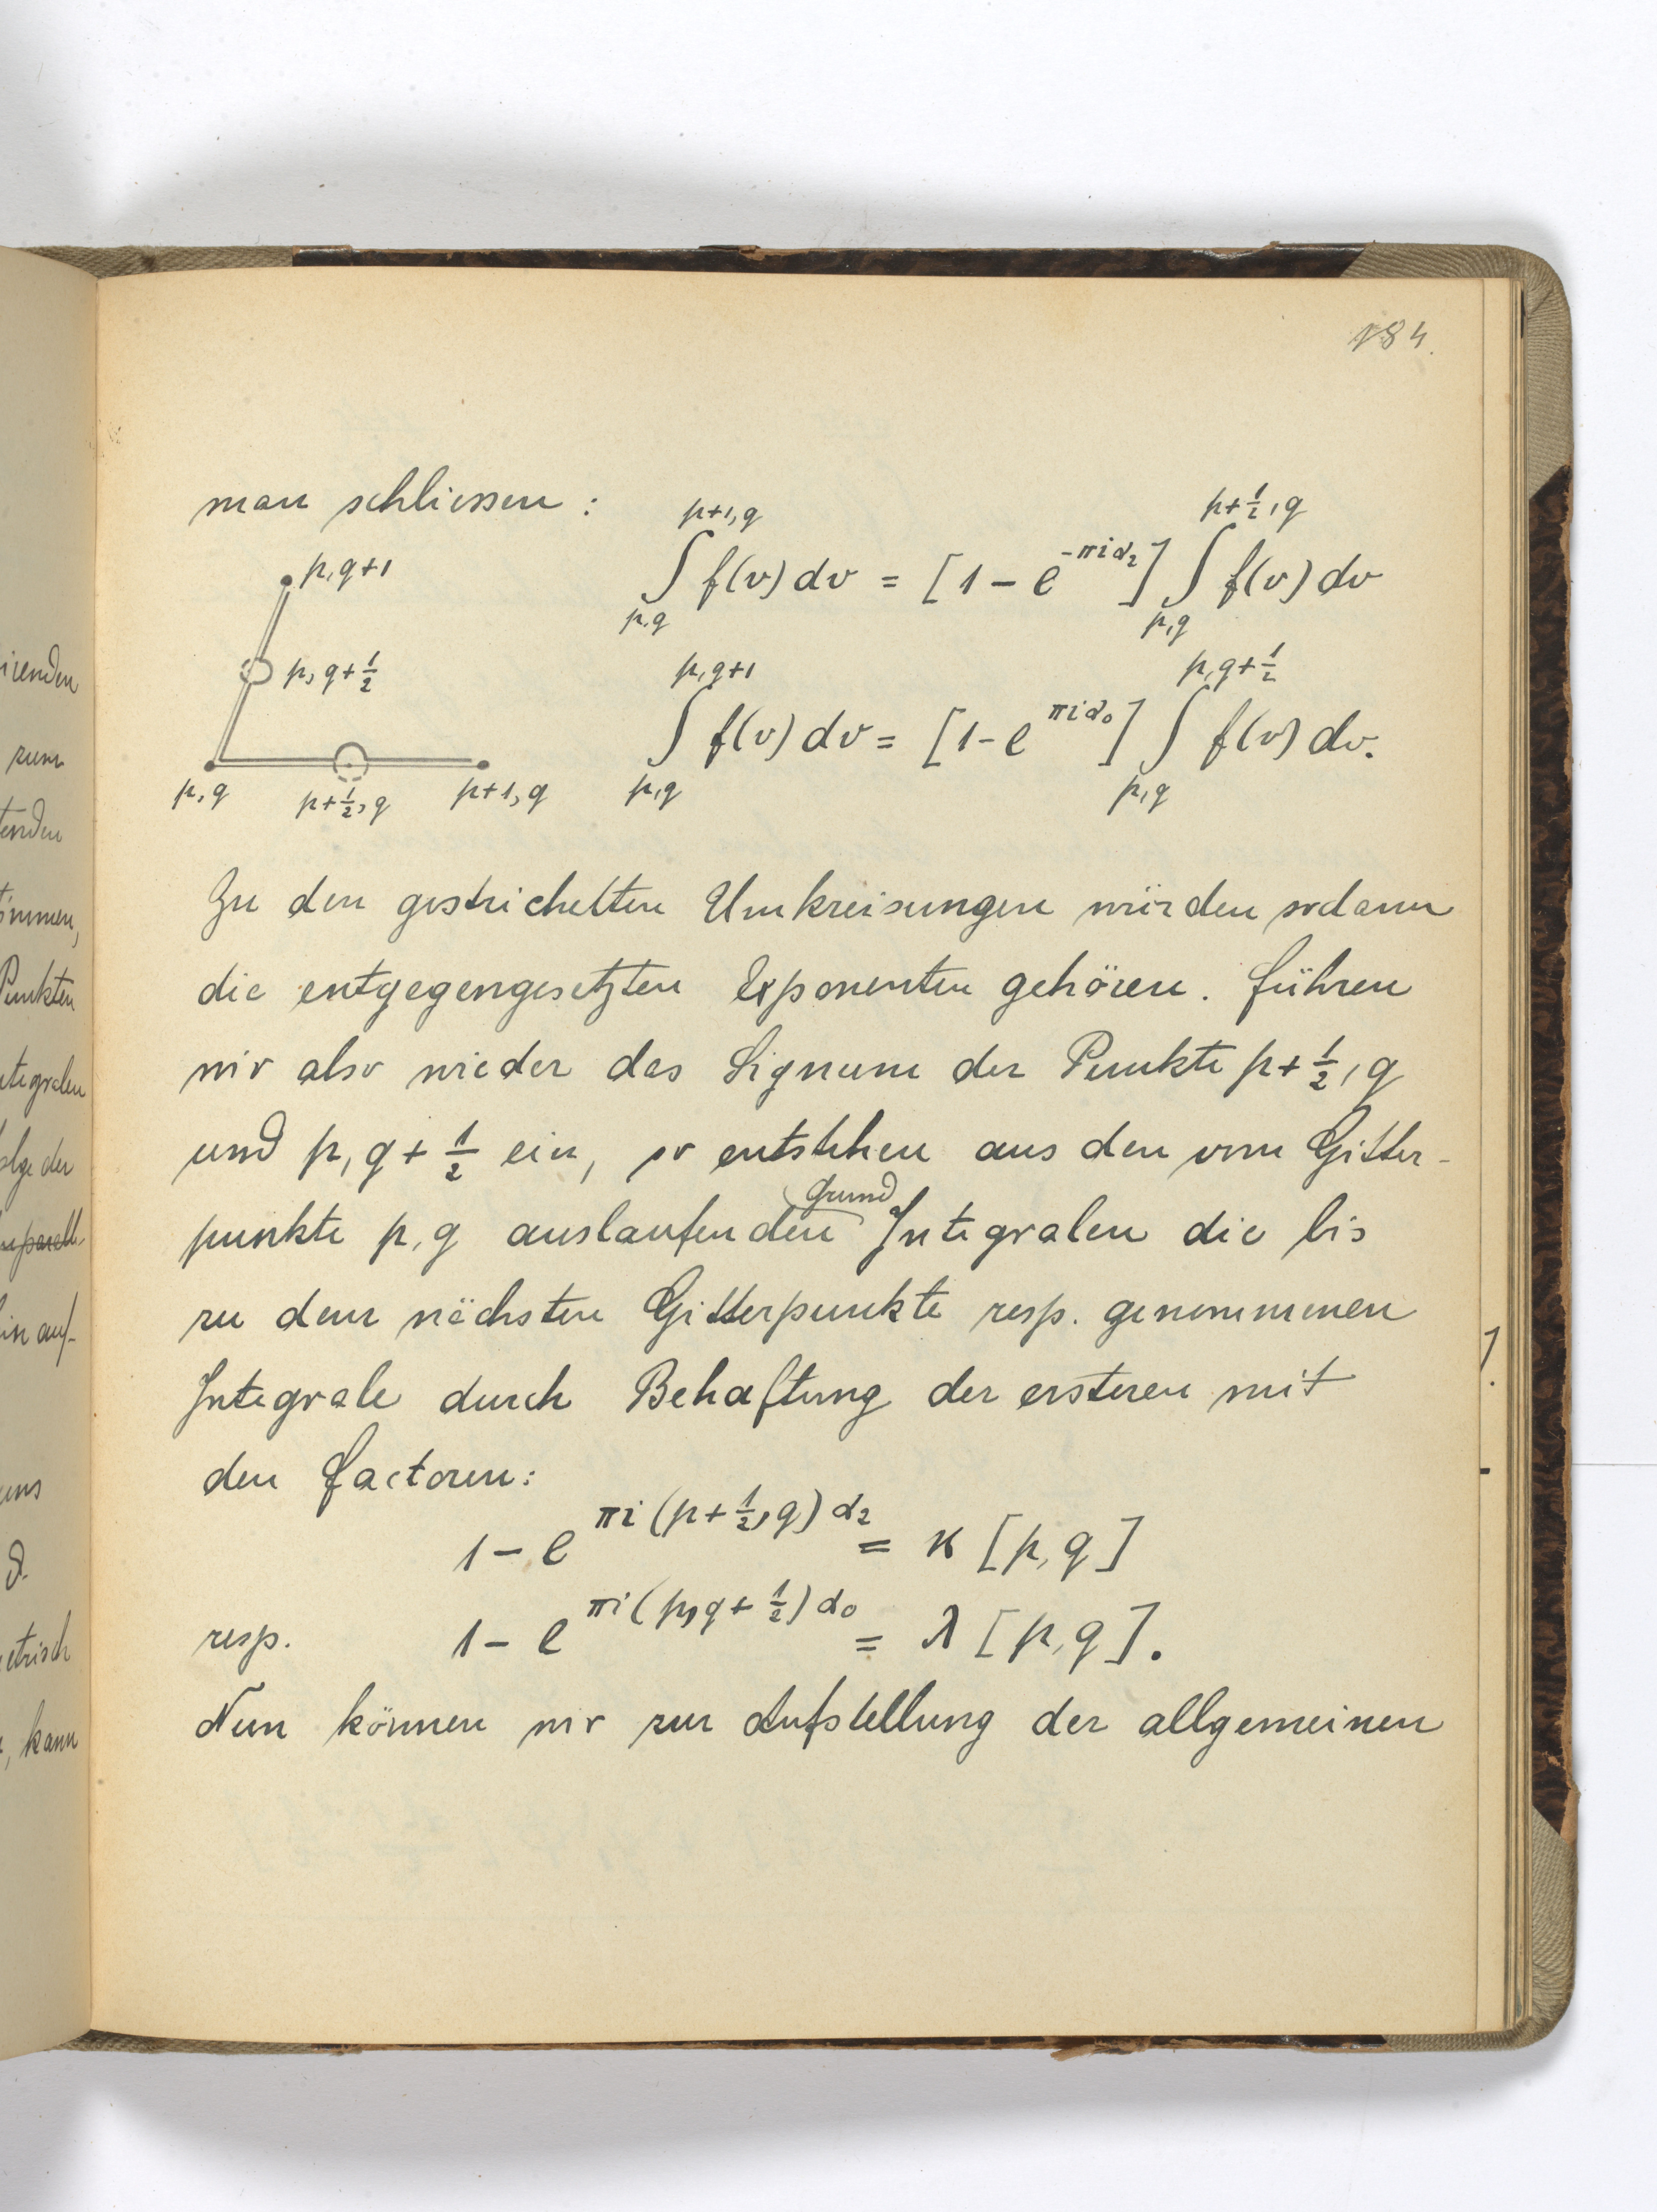 184.
man schliessen:
∫_{p,q}^{p+1,q} f(v) dv = [1 - e^{-πiα₂}] ∫_{p,q}^{p+½,q} f(v) dv
∫_{p,q}^{p,q+1} f(v) dv = [1 - e^{πiα₀}] ∫_{p,q}^{p,q+½} f(v) dv.
p,q+1
p, q+½
p,q
p+½, q
p+1, q
Zu den gestrichelten Umkreisungen würden sodann
die entgegengesetzten Exponenten gehören. Führen
wir also wieder das Signum der Punkte p+½, q
und p, q+½ ein, so entstehen aus den vom Gitter-
punkte p, q auslaufenden Grund Integralen die bis
zu dem nächsten Gitterpunkte resp. genommenen
Integrale durch Behaftung der ersteren mit
den Factoren:
1 - e^{πi(p+½,q)α₂} = κ [p,q]
resp. 1 - e^{πi(p,q+½)α₀} = λ [p,q].
Nun können wir zur Aufstellung der allgemeinen
irenden
zum
tenden
Punkten
tegralen
olge der
in auf-
uns
etrisch
, kann